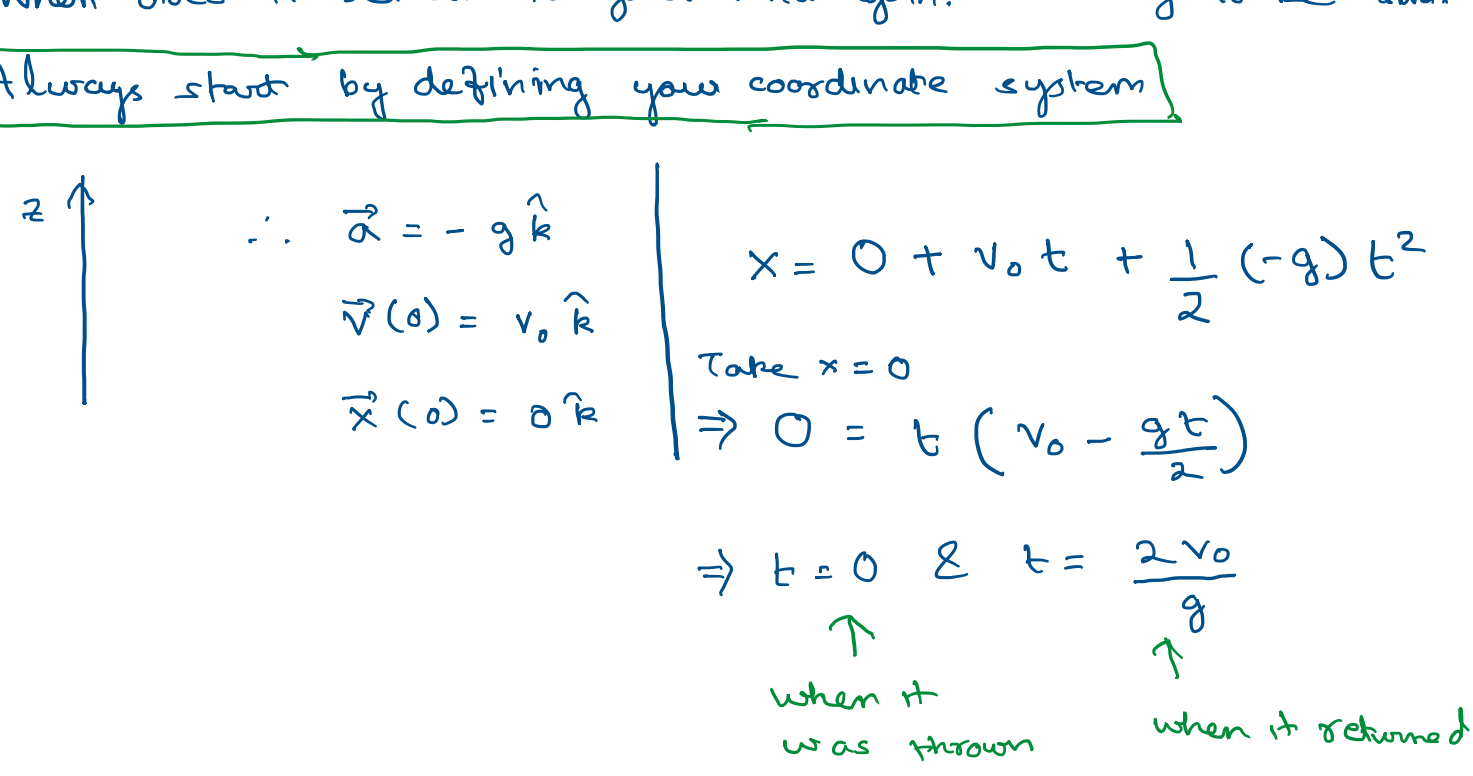 Always start by defining your coordinate system
z
∴ a⃗ = - g k̂
v⃗(0) = v₀ k̂
x⃗(0) = 0 k̂
x = 0 + v₀ t + 1/2 (-g) t²
Take x = 0
⇒ 0 = t (v₀ - gt/2)
⇒ t = 0 & t = 2v₀/g
when it
was thrown
when it returned